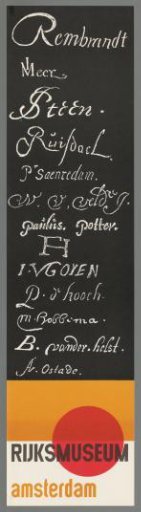 Rembrandt
Meer.
JSteen.
Ruisdael.
Pr Saenredam.
W. V. Velde J.
paulus. potter.
FH
I·VGOYEN
P. d' hooch.
m Hobbema.
B. vander. helst.
Av. Ostade.
RIJKSMUSEUM
amsterdam